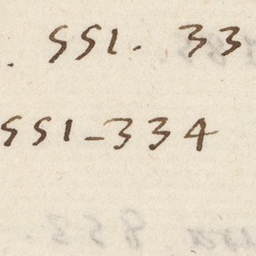 . 551. 33
551-334